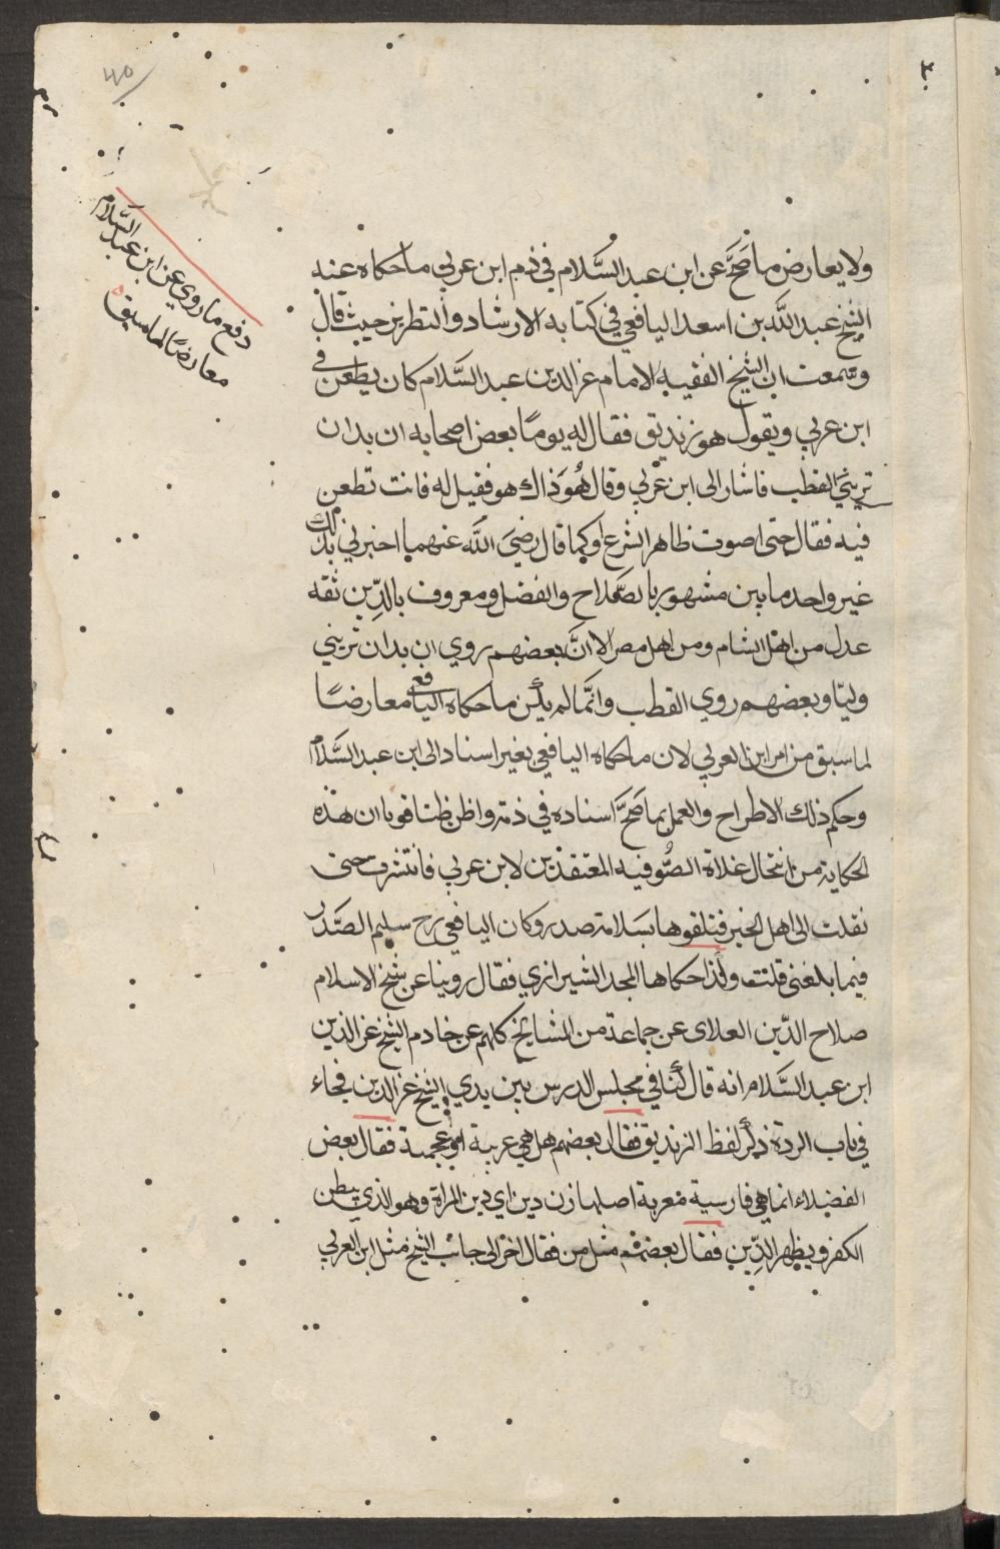 ولا يعارض ما صَحَّ عن ابن عبد السَّلام في ذم ابن عربي ما حكاه عنه
الشيخ عبد اللّه بن اسعد اليافعي في كتابه الارشاد والتطريز حيث قال
وسمعت ان الشيخ الفقيه الامام عز الدين عبد السَّلام كان يطعن في
ابن عربي ويقول هو زنديق فقال له يومًا بعض اصحابه ان بد ان
تريني القطب فاشار الى ابن عربي وقال هُوَ ذاك هو فقيل له فانت تطعن
فيه فقال حتى اصون ظاهر الشرع او كما قال رضي اللّه عنهما اخبرني بذلك
غير واحد ما بين مشهور بالصَّلاح والفضل ومعروف بالدِّين ثقه
عدل من اهل الشام ومن اهل مصر الا انَّ بعضهم روي ان بد ان تريني
وليّا وبعضهم روي القطب وانّما لم يكن ما حكاه اليافعي معارضًا
لما سبق من امر ابن العربي لان ما حكاه اليافعي بغير اسناد الى ابن عبد السَّلام
وحكم ذلك الاطراح والعمل بما صَحَّ اسناده في ذمه واظن ظنا قويا ان هذه
الحكاية من انتحال غلاة الصُّوفيه المعتقدين لابن عربي فانتشرت حتى
نقلت الى اهل الخير فتلقوها بسَلامة صدر وكان اليافعي رح سليم الصَّدر
فيما بلغني قلت ولذا حكاها المجد الشيرازي فقال روينا عن شيخ الاسلام
صلاح الدّين العلاى عن جماعة من المشايخ كلهم عن خادم الشيخ عز الدين
ابن عبد السَّلام انه قال كنا في مجلس الدرس بين يدي الشيخ عز الدين فجاء
في باب الردة ذكر لفظ الزنديق فقال بعضهم هل هي عربية او عجمية فقال بعض
الفضلاء انما هي فارسية معربة اصلها زن دين اي دين المراة وهو الذي يبطن
الكفر ويظهر الدِّين فقال بعضهم مثل من فقال اخر الى جانب الشيخ مثل ابن العربي
دفع ما روي عن ابن عبد السَّلام
معارضًا لما سبق